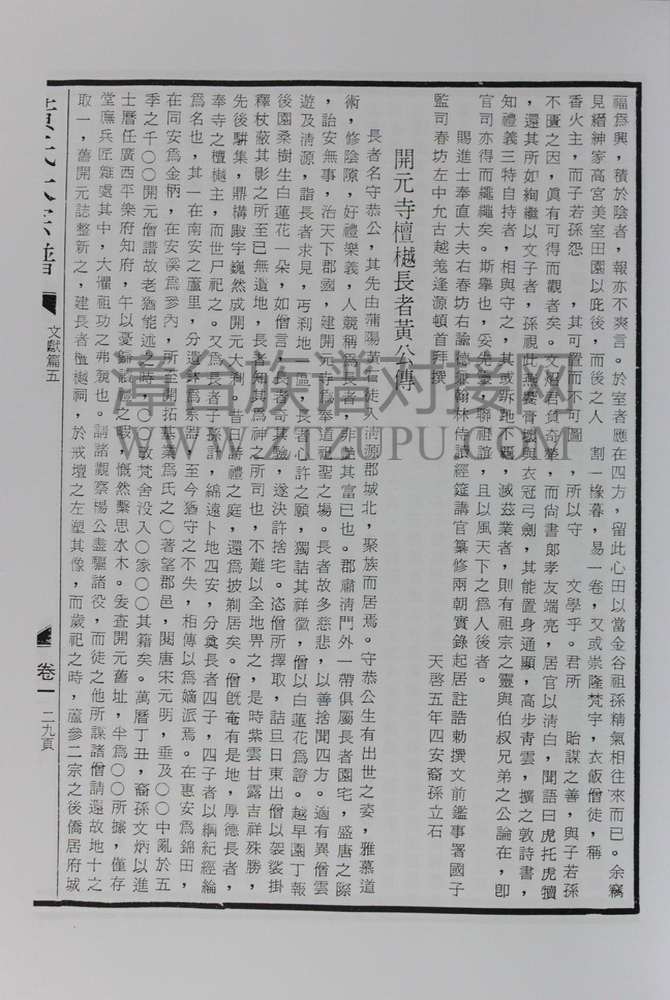 福爲興，積於陰者，報亦不爽言。於室者應在四方，留此心田以當金谷祖孫精氣相往來而已。余竊
見縉紳家高宮美室田園以庇後，而後之人　割一椽暮，易一卷，又或崇隆梵宇，衣飯僧徒，稱
香火主，而子若孫怨　，其可置而不可圖　，所以守　文學乎。君所　貽謀之善，與子若孫
不匱之因，眞有可得而觀者矣。文炤君負奇，而尚書郎孝友端亮，居官以淸白，聞語曰虎托虎犢
，還其所如絢繼以文子者，孫視此燕秦膏壞與衣冠弓劍，其能置身通顯，高步靑雲，擴之敦詩書，
知禮義三特自持者，相與守之，其或赤地不噩，滅茲業者，則有祖宗之靈與伯叔兄弟之公論在，卽
官司亦得而繩繩矣。斯擧也，妥先靈，聯祖誼，且以風天下之爲人後者。
賜進士奉直大夫右春坊右諭德兼翰林侍讀經筵講官纂修兩朝實錄起居註誥勅撰文前鑑事署國子
監司春坊左中允古越羗逢源頓首拜撰
天啓五年四安裔孫立石
開元寺檀樾長者黃公傳
長者名守恭公，其先由蒲陽黃石徒入淸源郡城北，聚族而居焉。守恭公生有出世之姿，雅慕道
術，修陰隲，好禮樂義，人競稱長者，非艷其富已也。郡肅淸門外一帶俱屬長者園宅，盛唐之際
，詒安無事，治天下郡國，建開元寺爲奉道祖聖之場。長者故多慈悲，以善捨聞四方。適有異僧雲
遊及淸源，詣長者求見，丐利地一區，長者心許之願，獨詰其祥徵，僧以白蓮花爲證。越早園丁報
後園桑樹生白蓮花一朶，如僧言，長者奇其驗，遂決許捨宅。恣僧所擇取，詰旦日東出僧以袈裟掛
釋杖蔽其影之所至已無遺地，長者知其爲神之所司也，不難以全地畀之，是時紫雲甘露吉祥殊勝，
先後騈集，鼎構殿宇巍然成開元大刹。昔日詩禮之庭，還爲披剃居矣。僧旣奄有是地，厚德長者，
奉寺之檀樾主，而世尸祀之。又爲長者子孫計，綿遠卜地四安，分奠長者四子，四子者以綱紀經綸
爲名也，其一在南安之蘆里，分遺鉢爲素器，至今猶守之不失，相傳以爲嫡派焉。在惠安爲錦田，
在同安爲金柄，在安溪爲參內，所至開拓基業爲氏之〇著望郡邑，閱唐宋元明，垂及〇〇中亂於五
季之千〇〇開元僧譜故老猶能述之時，〇〇敎梵舍没入〇家〇〇其籍矣。萬曆丁丑，裔孫文炳以進
士曆任廣西平樂府知府，午以憂歸詣莅之暇，慨然繫思水木。爰査開元舊址，半爲〇〇所據，僅存
堂廡兵匠雜處其中，大懼祖功之弗競也。請諸觀察楊公盡驅諸役，而徒之他所謀諸僧請還故地十之
取一，舊開元誌整新之，建長者檀樾祠，於戒壇之左塑其像，而歲祀之時，蘆參二宗之後僑居府城
文獻篇五
卷一
二九頁
漳台族谱对接网
WWW.ZTZUPU.COM